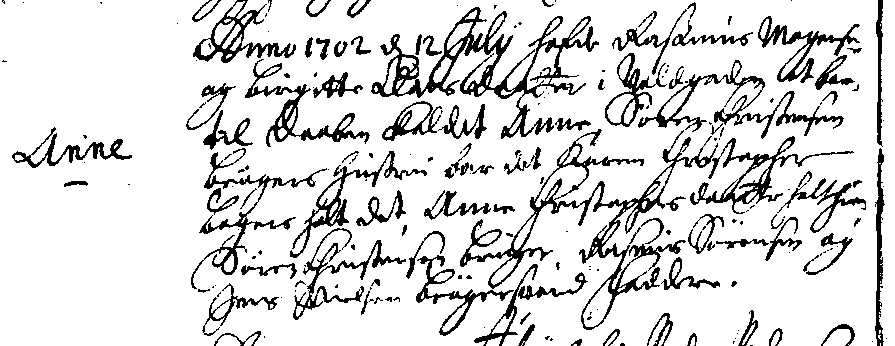 Anno 1702 d 12 July hafde Rasmus Mogens:
og Birgitte Clausdaatter i Voldgaden et barn
til Daaben kaldet Anne, Søren Christensen
Anne
brygers Hustru bar det Karen Christopher
bagers holt det, Anne Christophersdaatter
Søren Christensen bryger, Rasmus Sørensen og
Jens Nielsen brygersvend faddere.